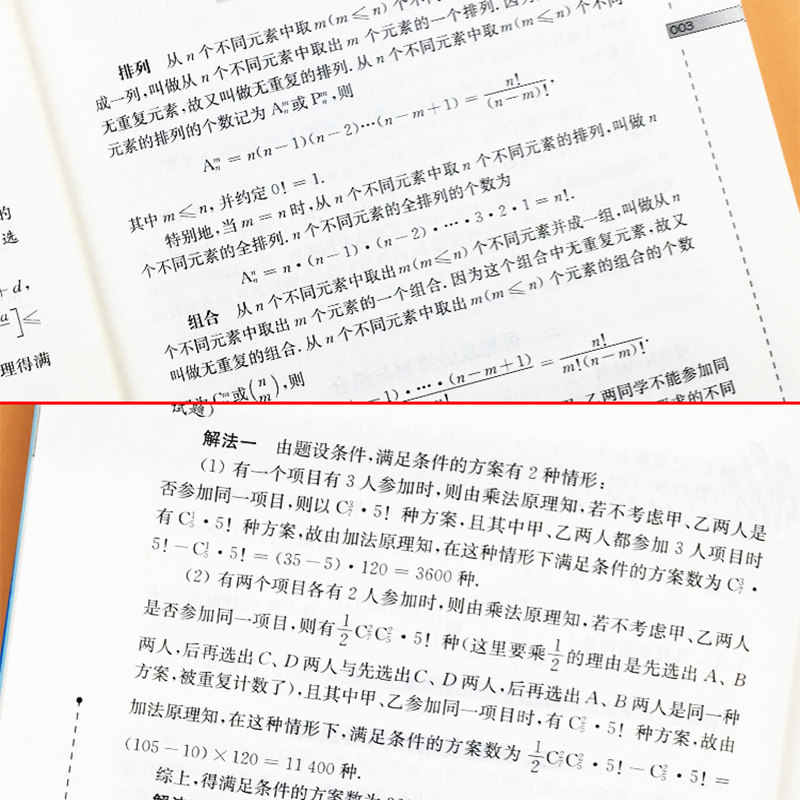 003
排列 从 n 个不同元素中取 m(m≤n)个不
成一列,叫做从 n 个不同元素中取出 m 个元素的一个排列.因为
无重复元素,故又叫做无重复的排列.从 n 个不同元素中取 m(m≤n)个不同
元素的排列的个数记为 Aₙᵐ或 Pₙᵐ,则
Aₙᵐ = n(n-1)(n-2)…(n-m+1) = n!/(n-m)!.
其中 m≤n,并约定 0! = 1.
特别地,当 m = n 时,从 n 个不同元素中取 n 个不同元素的排列,叫做 n
个不同元素的全排列.n 个不同元素的全排列的个数为
Aₙⁿ = n·(n-1)·(n-2)·…·3·2·1 = n!.
组合 从 n 个不同元素中取出 m(m≤n)个不同元素并成一组,叫做从 n
个不同元素中取出 m 个元素的一个组合.因为这个组合中无重复元素,故又
叫做无重复的组合.从 n 个不同元素中取出 m(m≤n)个元素的组合的个数
为 Cₙᵐ或(n m),则
-1)·…·(n-m+1) = n!/m!(n-m)!.
的
选
+d,
a]≤
理得满
乙两同学不能参加同
求的不同
试题)
解法一 由题设条件,满足条件的方案有 2 种情形:
(1) 有一个项目有 3 人参加时,则由乘法原理知,若不考虑甲、乙两人是
否参加同一项目,则以 C₇³·5! 种方案,且其中甲、乙两人都参加 3 人项目时
有 C₅¹·5! 种方案,故由加法原理知,在这种情形下满足条件的方案数为 C₇³·
5!-C₅¹·5! = (35-5)·120 = 3600 种.
(2) 有两个项目各有 2 人参加时,则由乘法原理知,若不考虑甲、乙两人
是否参加同一项目,则有 1/2 C₇²C₅²·5! 种(这里要乘 1/2 的理由是先选出 A、B
两人,后再选出 C、D 两人与先选出 C、D 两人,后再选出 A、B 两人是同一种
方案,被重复计数了),且其中甲、乙参加同一项目时,有 C₅²·5! 种方案,故由
加法原理知,在这种情形下,满足条件的方案数为 1/2 C₇²C₅²·5!-C₅²·5! =
(105-10)×120 = 11 400 种.
综上,得满足条件的方案数为